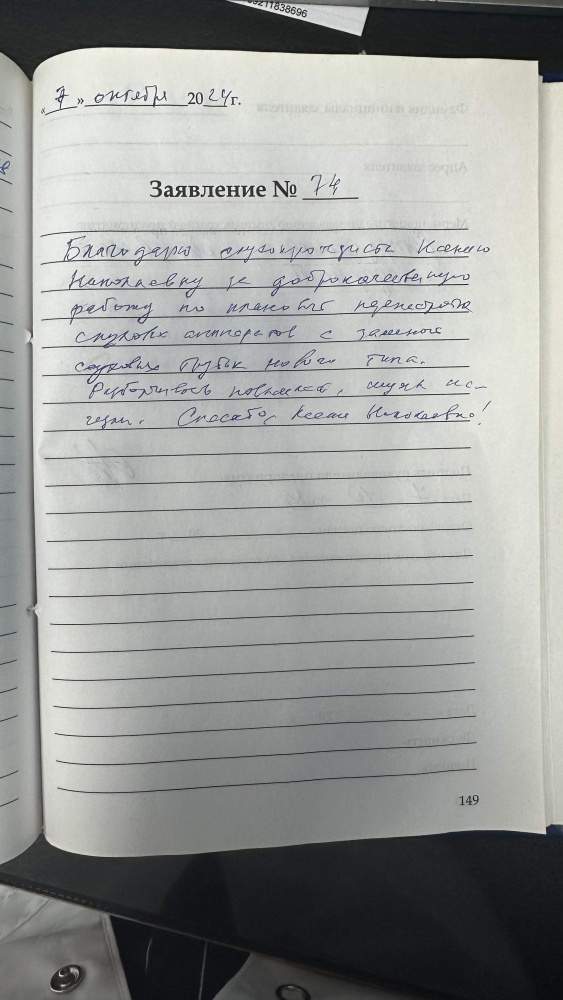 9211838696
«7» октября 2024 г.
Заявление № 74
Благодарю слухопротезиста Ксению
Николаевну за доброкачественную
работу по плановой
слуховых аппаратов с заменой
трубок нового типа.
Разборчивость повысилась, шумы ис-
чезли. Спасибо, Ксения Николаевна!
149